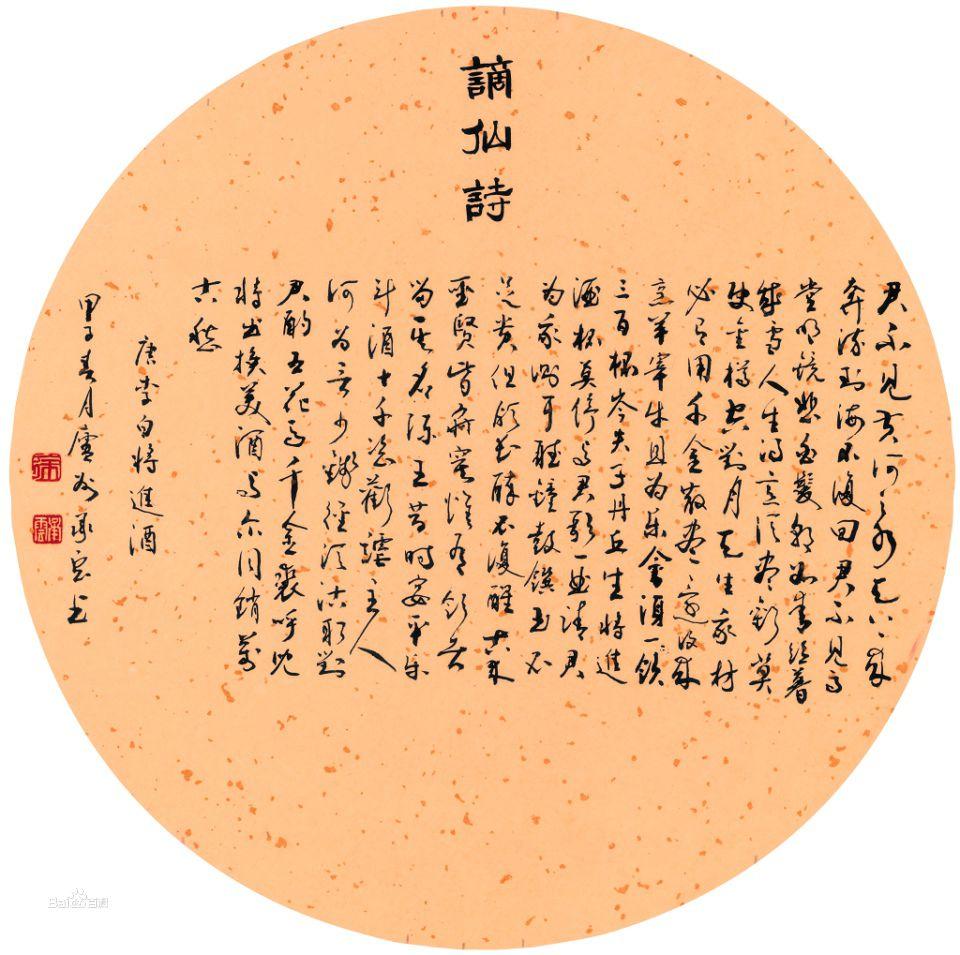 謫仙詩
君不見黃河之水天上來
奔流到海不復回君不見高
堂明鏡悲白髮朝如青絲暮
成雪人生得意須盡歡莫
使金樽空對月天生我材
必有用千金散盡還復來
烹羊宰牛且為樂會須一飲
三百杯岑夫子丹丘生將進
酒杯莫停與君歌一曲請君
為我側耳聽鐘鼓饌玉不
足貴但願長醉不復醒古來
聖賢皆寂寞惟有飲者
留其名陳王昔時宴平樂
斗酒十千恣歡謔主人
何為言少錢徑須沽取對
君酌五花馬千金裘呼兒
將出換美酒與爾同銷萬
古愁
唐李白將進酒
甲子春月廬州
Baidu百科